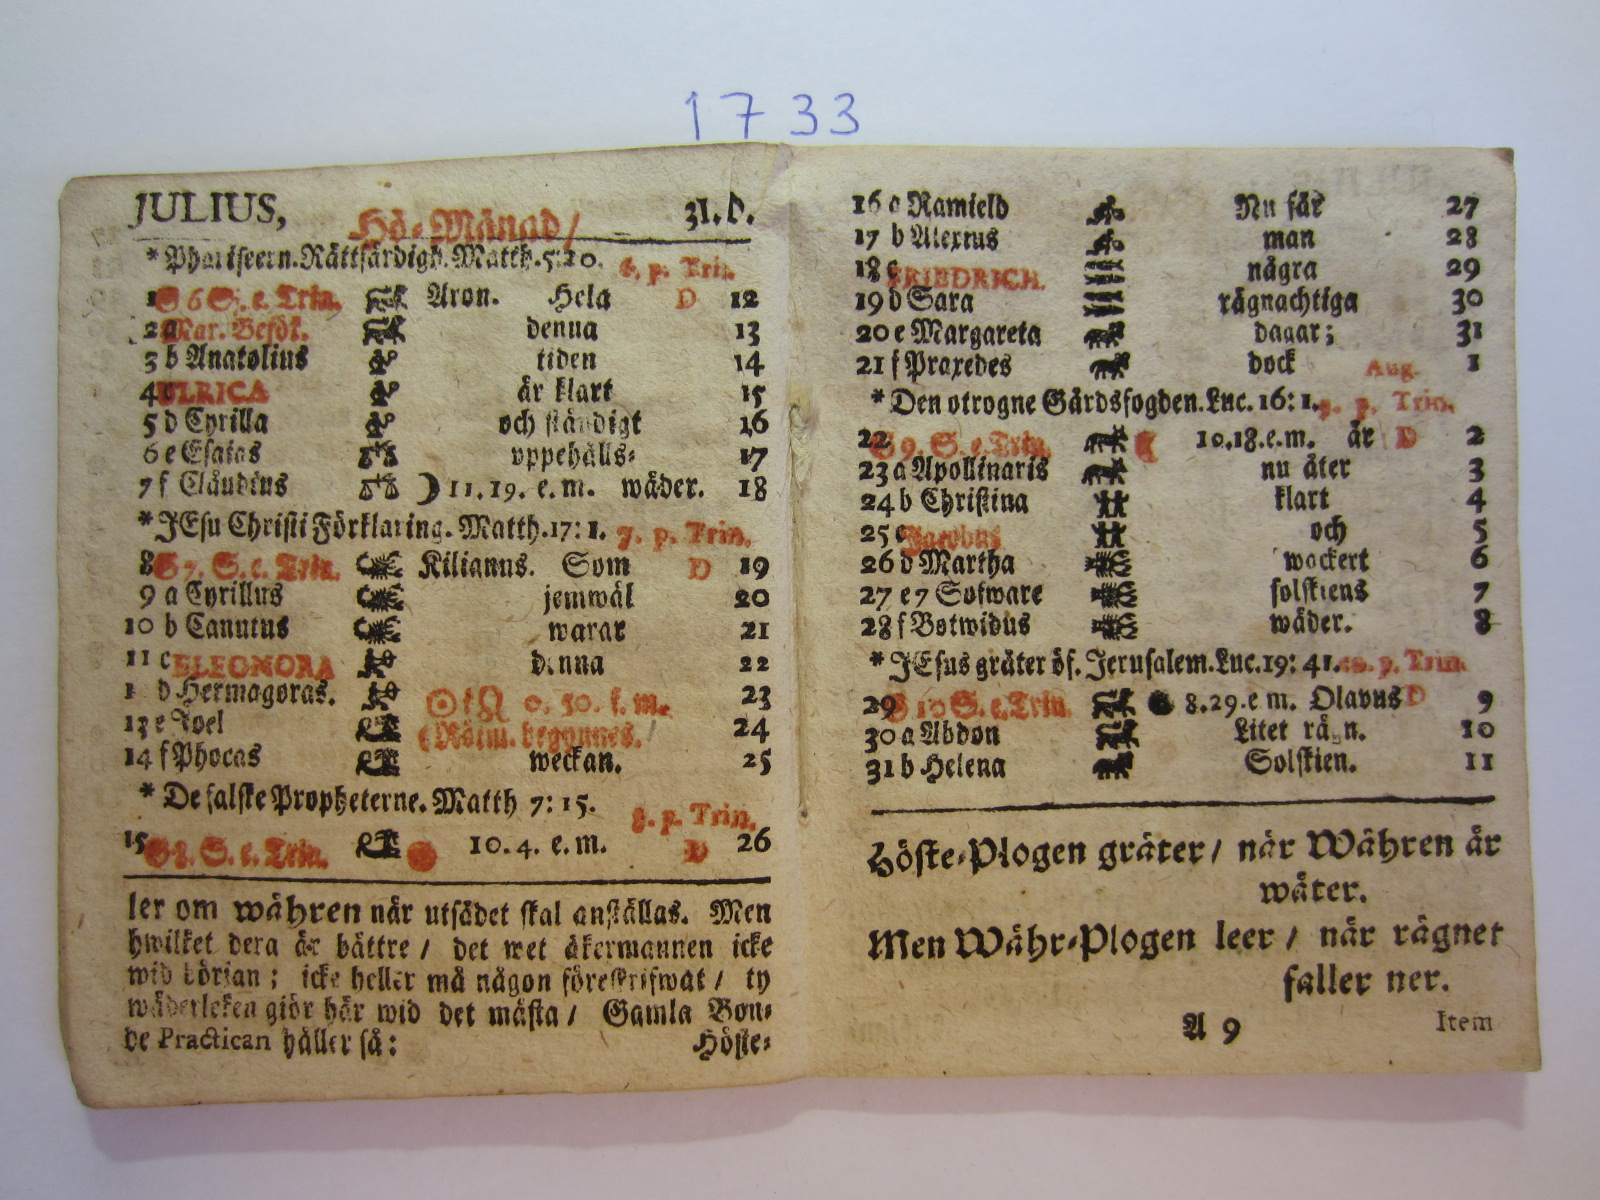 1733
JULIUS, Hö-Månad/ 31. D.
* Phariseern. Rättfärdigh. Matth. 5:20. 6. p. Trin.
1 G 6 S. e. Trin. Aron. Hela D 12
2 a Mar. Besök. denna 13
3 b Anatolius tiden 14
4 ULRICA är klart 15
5 d Cyrilla och ständigt 16
6 e Esaias uppehålls- 17
7 f Claudius ☽ 11. 19. e. m. wäder. 18
* JEsu Christi Förklaring. Matth. 17: 1. 7. p. Trin.
8 G 7. S. e. Trin. Kilianus. Som D 19
9 a Cyrillus jemwäl 20
10 b Canutus warar 21
11 c ELEONORA denna 22
1 d Hermagoras. ☉ i ♌ 0. 50. f. m. 23
13 e Joel (Rötm. begynnes. 24
14 f Phocas weckan. 25
* De falske Propheterne. Matth 7: 15. 8. p. Trin.
15 G 8. S. e. Trin. 10. 4. e. m. D 26
ler om währen när utsädet skal anställas. Men
hwilket dera är bättre / det wet åkermannen icke
wid början; icke heller må någon föreskrifwat / ty
wäderleken giör här wid det mästa / Gamla Bon-
de Practican håller så: Höste-
16 a Ramield Nu får 27
17 b Alexius man 28
18 c FRIEDRICH. några 29
19 d Sara rägnachtiga 30
20 e Margareta dagar; 31
21 f Praxedes dock Aug. 1
* Den otrogne Gårdsfogden. Luc. 16: 1. 9. p. Trin.
22 G 9. S. e. Trin. ☾ 10. 18. e. m. är D 2
23 a Apollinaris nu åter 3
24 b Christina klart 4
25 c Jacobus och 5
26 d Martha wackert 6
27 e 7 Sofware solskiens 7
28 f Botwidus wäder. 8
* JEsus gråter öf. Jerusalem. Luc. 19: 41. 10. p. Trin.
29 G 10 S. e. Trin. ● 8. 29. e m. Olavus D 9
30 a Abdon Litet rägn. 10
31 b Helena Solskien. 11
Höste-Plogen gråter / när Währen är
wåter.
Men Währ-Plogen leer / när rägnet
faller ner.
A 9 Item